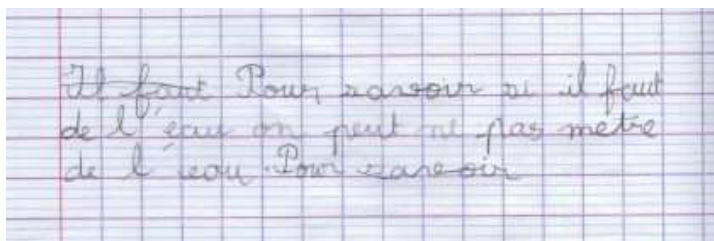 Il faut Pour savoir si il faut
de l'eau on peut ne pas metre
de l'eau Pour savoir